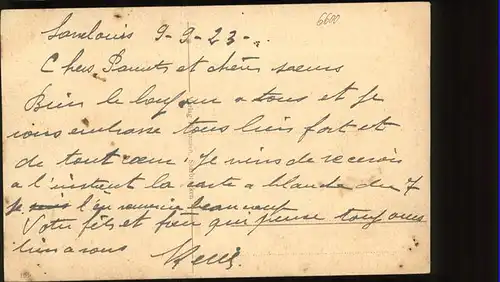 Sarrelouis 9-9-23-
6600
Chers Parents et chères soeurs
Bien le bonjour a tous et je
vous embrasse tous bien fort et
de tout coeur. Je viens de recevoir
a l'instant la carte a blanche du 7
je l'en remercie beaucoup
Votre fils et frère qui pense toujours
bien a vous